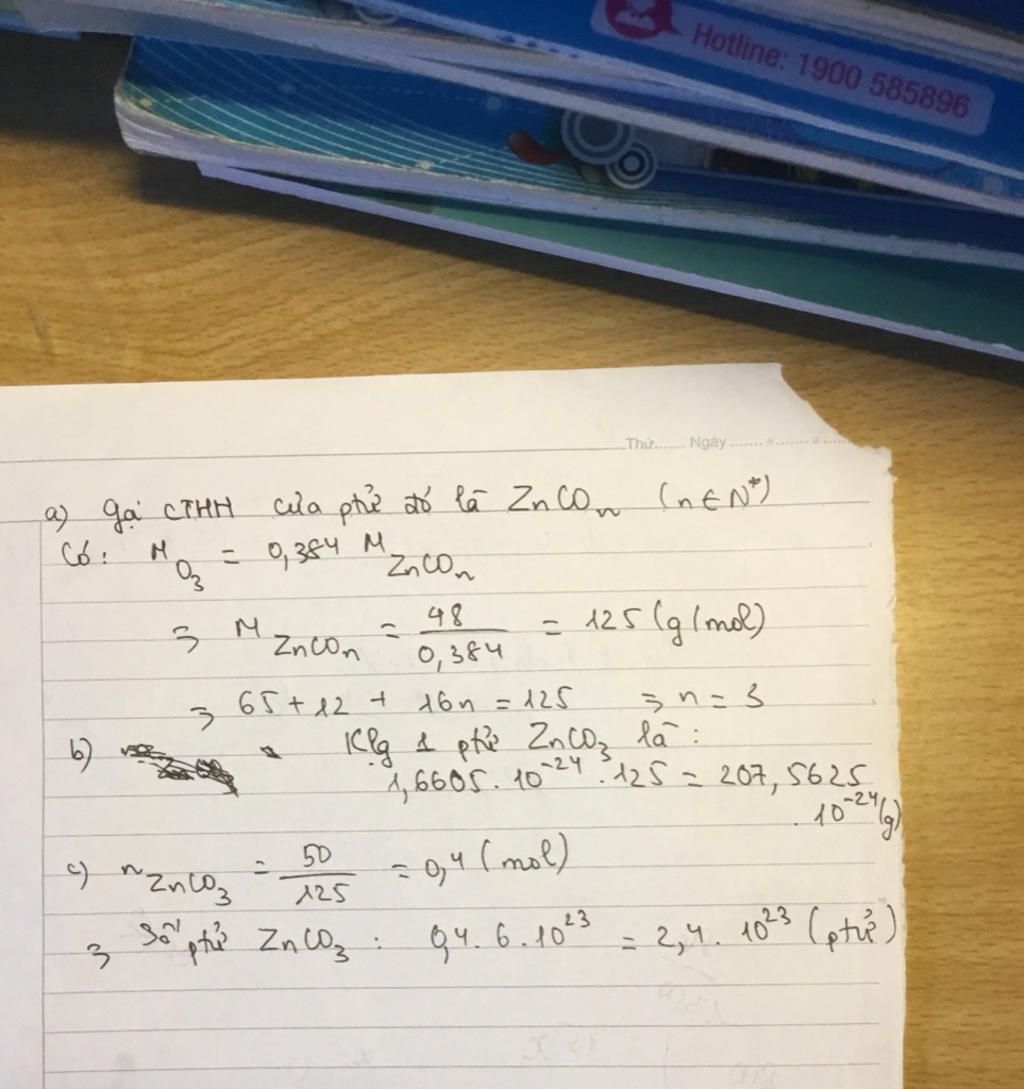 Hotline: 1900 585896
Thứ....... Ngày
a) Gọi CTHH của ptử đó là ZnCOₙ (n ∈ N*)
Có: M O₃ = 0,384 M ZnCOₙ
⇒ M ZnCOₙ = 48/0,384 = 125 (g/mol)
⇒ 65 + 12 + 16n = 125 ⇒ n = 3
b) Klg 1 ptử ZnCO₃ là :
1,6605 . 10⁻²⁴ . 125 = 207,5625
. 10⁻²⁴ (g)
c) n ZnCO₃ = 50/125 = 0,4 (mol)
⇒ Số ptử ZnCO₃ : 0,4 . 6 . 10²³ = 2,4 . 10²³ (ptử)